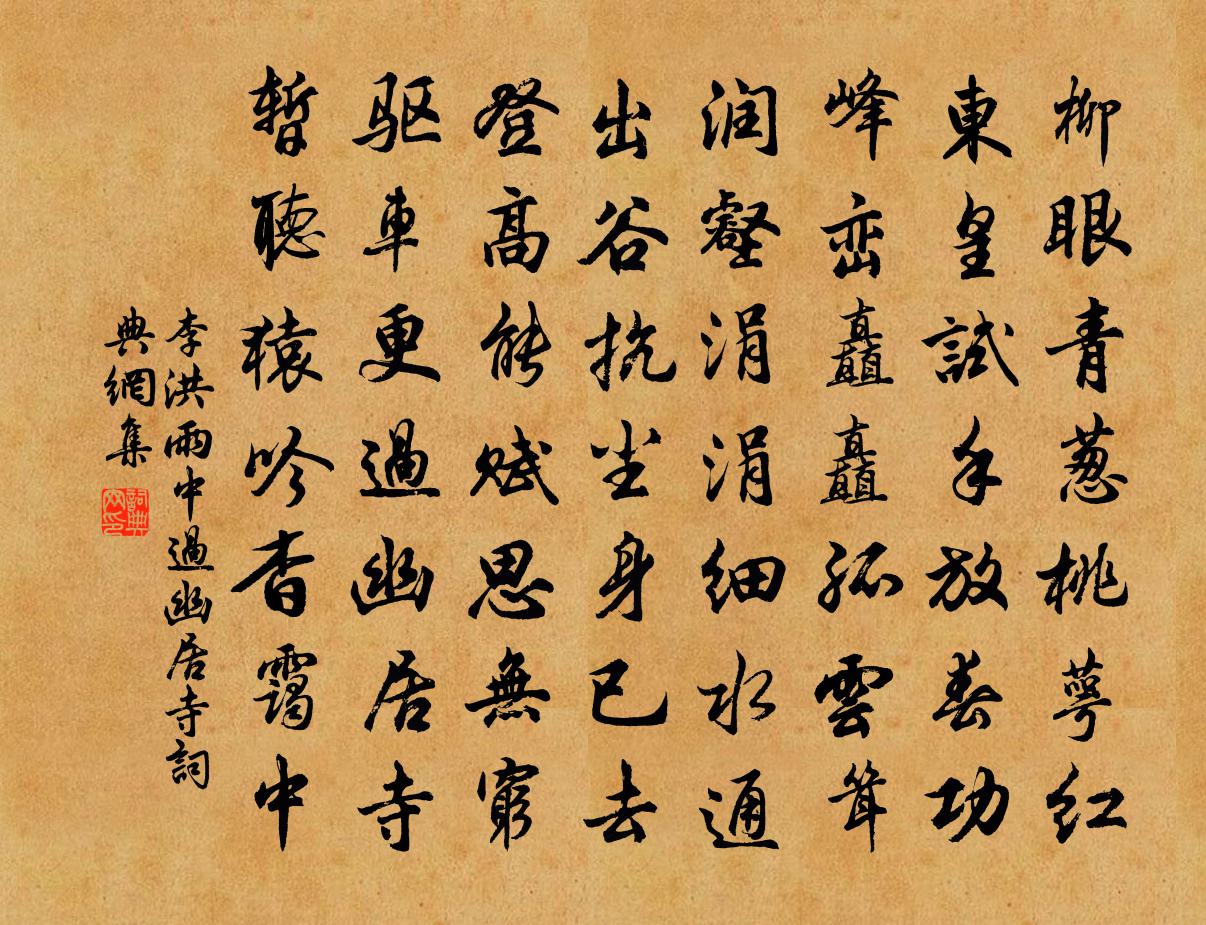 柳眼青葱桃萼红
東皇試手放春功
峰峦矗矗孤雲耸
润壑涓涓细水通
出谷抗尘身已去
登高能赋思無窮
驱車更過幽居寺
暫聽猿吟杳霭中
李洪雨中過幽居寺詞
典網集
詞典网印